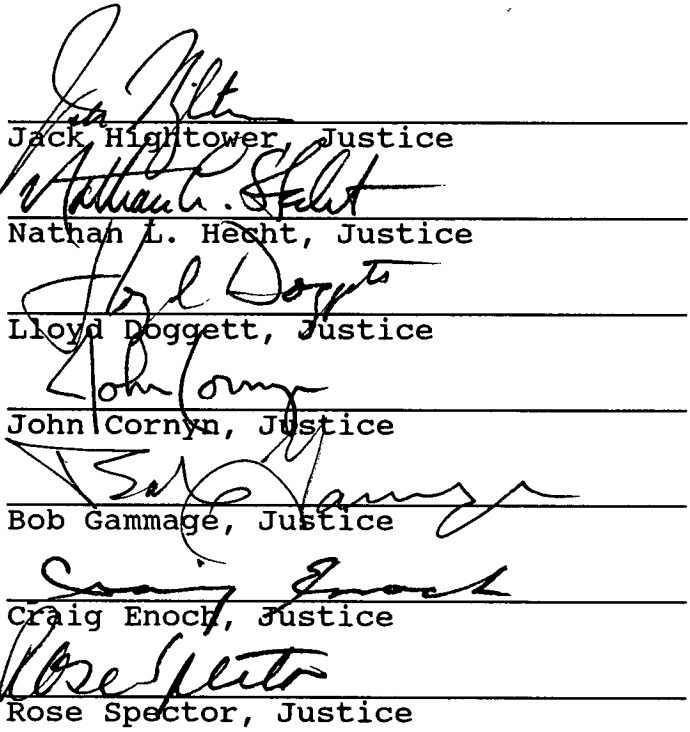 Jack Hightower, Justice
Nathan L. Hecht
Nathan L. Hecht, Justice
Lloyd Doggett
Lloyd Doggett, Justice
John Cornyn
John Cornyn, Justice
Bob Gammage
Bob Gammage, Justice
Craig Enoch
Craig Enoch, Justice
Rose Spector
Rose Spector, Justice